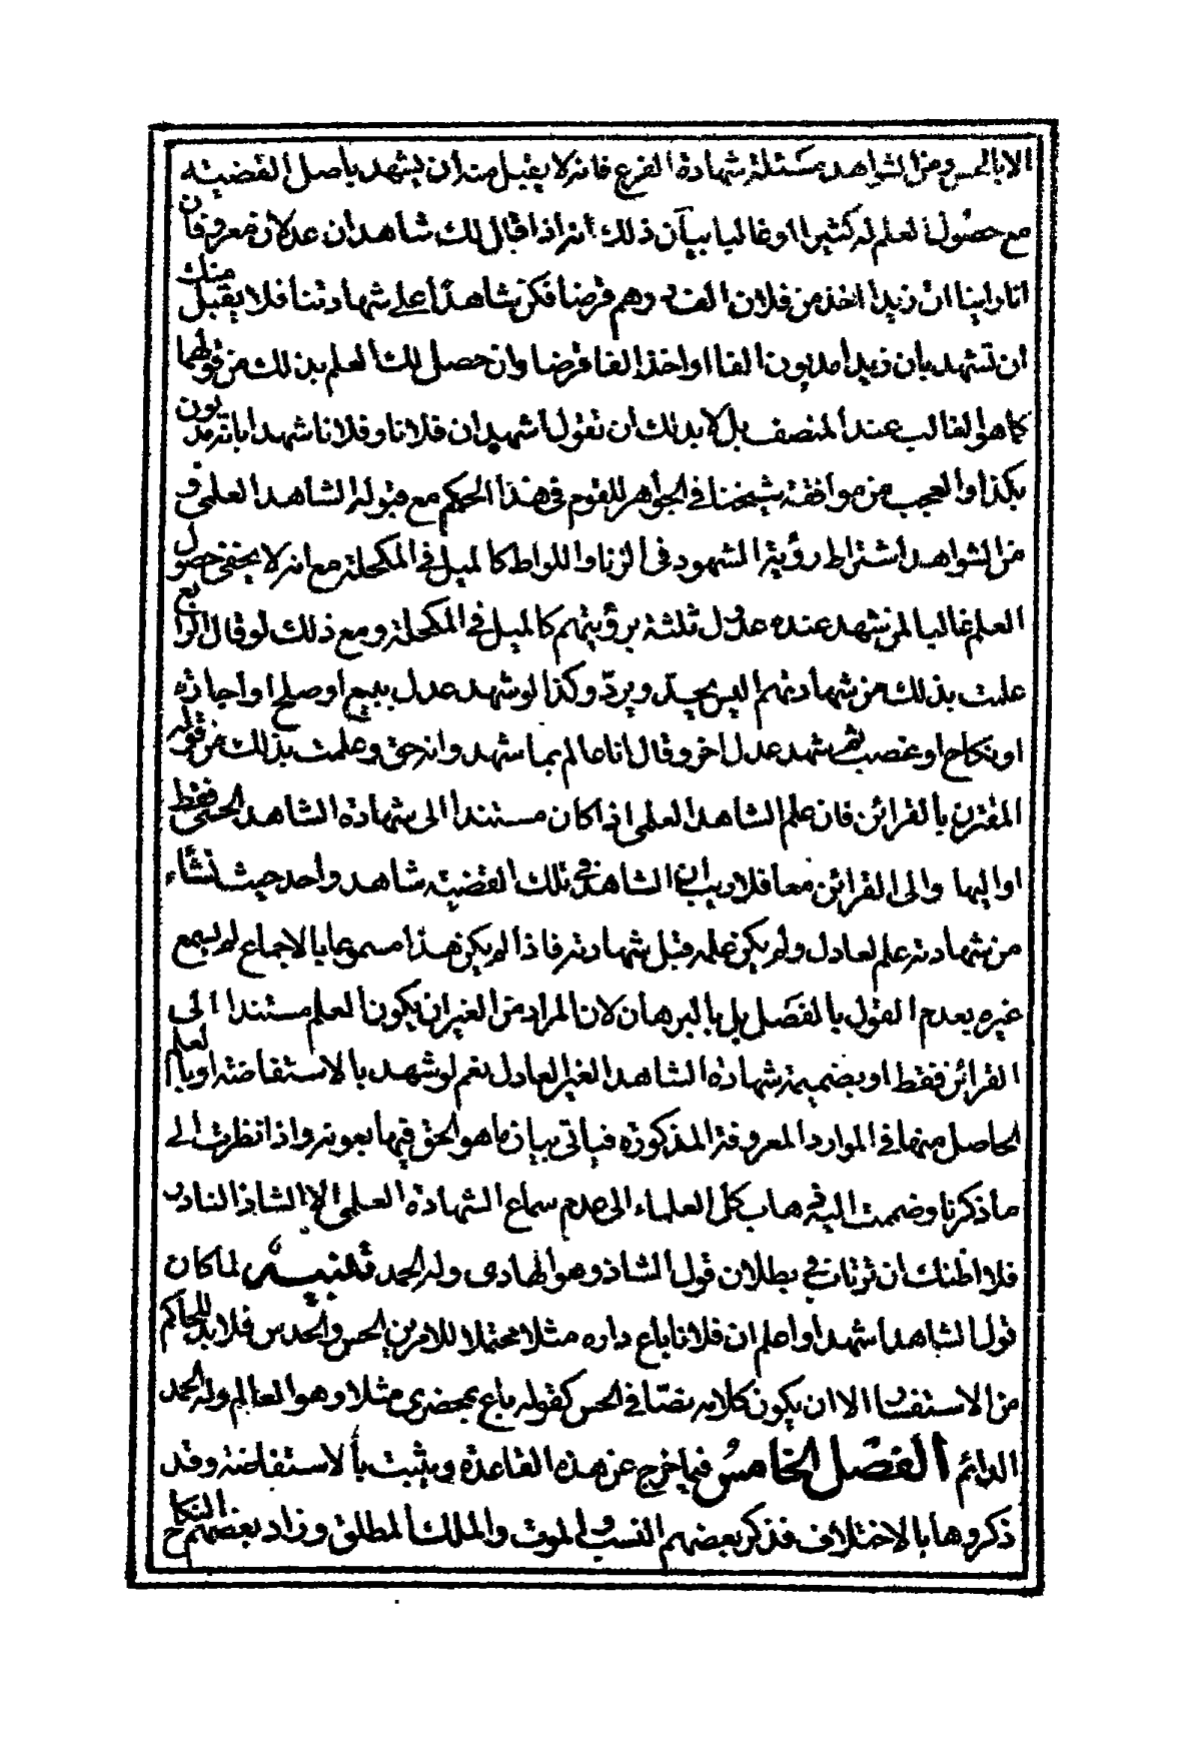 الا بالحس ومن الشواهد مسئلة شهادة الفرع فانه لا يقبل منه ان يشهد باصل القضيته
مع حصول العلم له كثيرا او غالبا بيان ذلك انه اذا قال لك شاهدان عدلان معروفان
انا راينا ان زيدا اخذ من فلان الف درهم قرضا فكن شاهدا على شهادتنا فلا يقبل منك
ان تشهد بان زيدا مديون الفا او اخذ الفا قرضا وان حصل لك العلم بذلك من قولهما
كما هو الغالب عند المنصف بل لا بد لك ان تقول اشهد ان فلانا وفلانا شهدا بانه مديون
بكذا والعجب من موافقة شيخنا في الجواهر للقوم في هذا الحكم مع قبوله الشاهد العلمي و
من الشواهد اشتراط رؤية الشهود في الزنا واللواط كالميل في المكحلة مع انه لا يخفى حصول
العلم غالبا لمن شهد عنده عدول ثلثة برؤيتهم كالميل في المكحلة ومع ذلك لو قال الرابع
علمت بذلك من شهادتهم اليس يحد ويرد وكذا لو شهد عدل ببيع او صلح او اجازه
او نكاح او غصب ثم شهد عدل اخر وقال انا عالم بما شهد وانه حق وعلمت بذلك من قوله
المقترن بالقرائن فان علم الشاهد العلمي اذا كان مستندا الى شهادة الشاهد الحسي فقط
او اليها والى القرائن معا فلا ريب ان الشاهد في تلك القضيته شاهد واحد حيث نشاء
من شهادته علم العادل ولم يكن علمه قبل شهادته فاذا لم يكن هذا مسموعا بالاجماع لم يسمع
غيره بعدم القول بالفصل بل بالبرهان لان المراد من الغير ان يكون العلم مستندا الى
القرائن فقط او بضميمة شهادة الشاهد الغير العادل نعم لو شهد بالاستفاضته او بالعلم
الحاصل منها في الموارد المعروفة المذكورة فياتي بيان ما هو الحق فيها بعونه واذا نظرت الى
ما ذكرنا وضممت اليه ذهاب كل العلماء الى عدم سماع الشهادة العلمي الا الشاذ النادر
فلا اظنك ان ترتاب في بطلان قول الشاذ وهو الهادي وله الحمد تنبيه لما كان
قول الشاهد اشهد او اعلم ان فلانا باع داره مثلا محتملا للامرين الحس والحدس فلا بد للحاكم
من الاستفسار الا ان يكون كلامه نصا في الحس كقوله باع بمحضري مثلا وهو العالم وله الحمد
الدائم الفصل الخامس فيما خرج عن هذه القاعدة ويثبت بالاستفاضته وقد
ذكروها بالاختلاف فذكر بعضهم النسب والموت والملك المطلق وزاد بعضهم النكاح